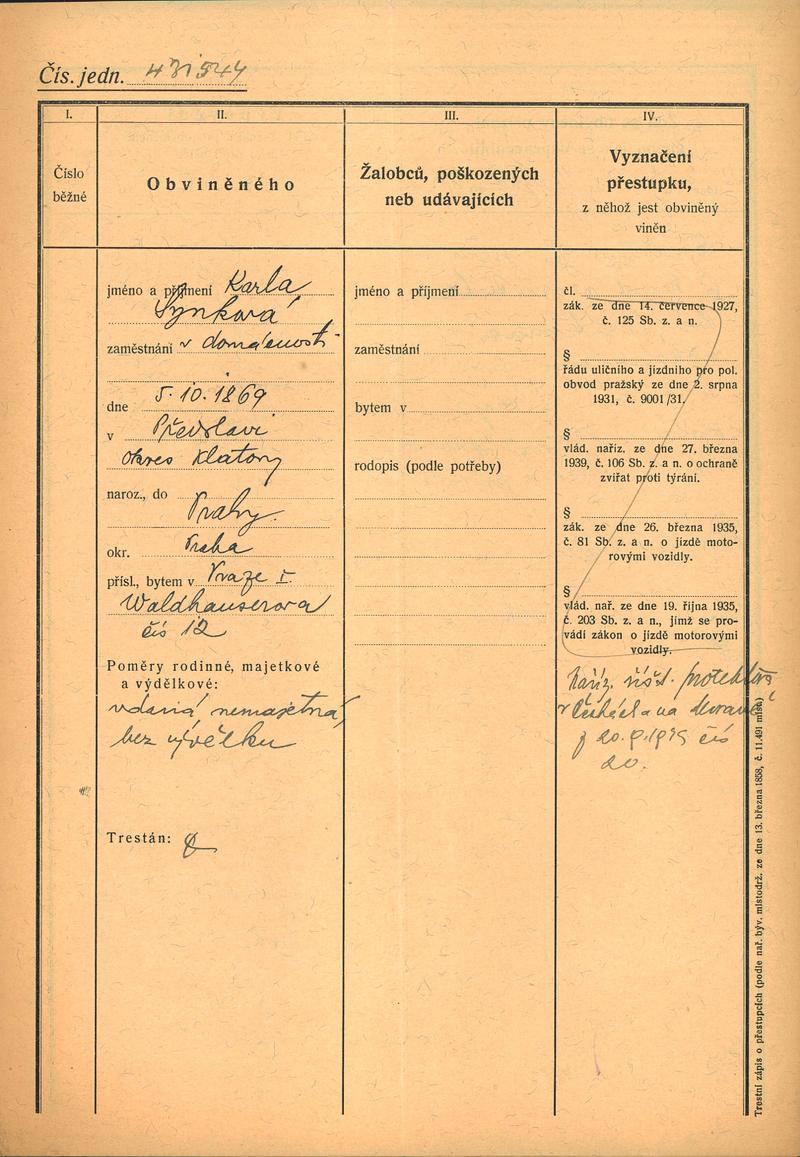 Čís. jedn. 431544
I.
II.
III.
IV.
Číslo
běžné
Obviněného
Žalobců, poškozených
neb udávajících
Vyznačení
přestupku,
z něhož jest obviněný
viněn
jméno a příjmení Karla
Synková
zaměstnání v domácnosti
dne 5.10.1869
v Předslavi
okres Klatovy
naroz., do
Prahy
okr. Praha
přísl., bytem v Praze I.
Waldhauserova
čís 12
Poměry rodinné, majetkové
a výdělkové:
vdaná, nemajetná,
bez výdělku
Trestán:
jméno a příjmení
zaměstnání
bytem v
rodopis (podle potřeby)
čl.
zák. ze dne 14. července 1927,
č. 125 Sb. z. a n.
§
řádu uličního a jízdního pro pol.
obvod pražský ze dne 2. srpna
1931, č. 9001/31.
§
vlád. naříz. ze dne 27. března
1939, č. 106 Sb. z. a n. o ochraně
zvířat proti týrání.
§
zák. ze dne 26. března 1935,
č. 81 Sb. z. a n. o jízdě moto-
rovými vozidly.
§
vlád. nař. ze dne 19. října 1935,
č. 203 Sb. z. a n., jímž se pro-
vádí zákon o jízdě motorovými
vozidly.
naříz. říšt. protektora
v Čechách a na Moravě
z 20. 1939 čís
20.
Trestní zápis o přestupcích (podle nař. býv. místodrž. ze dne 13. března 1858, č. 11.491 míst.)